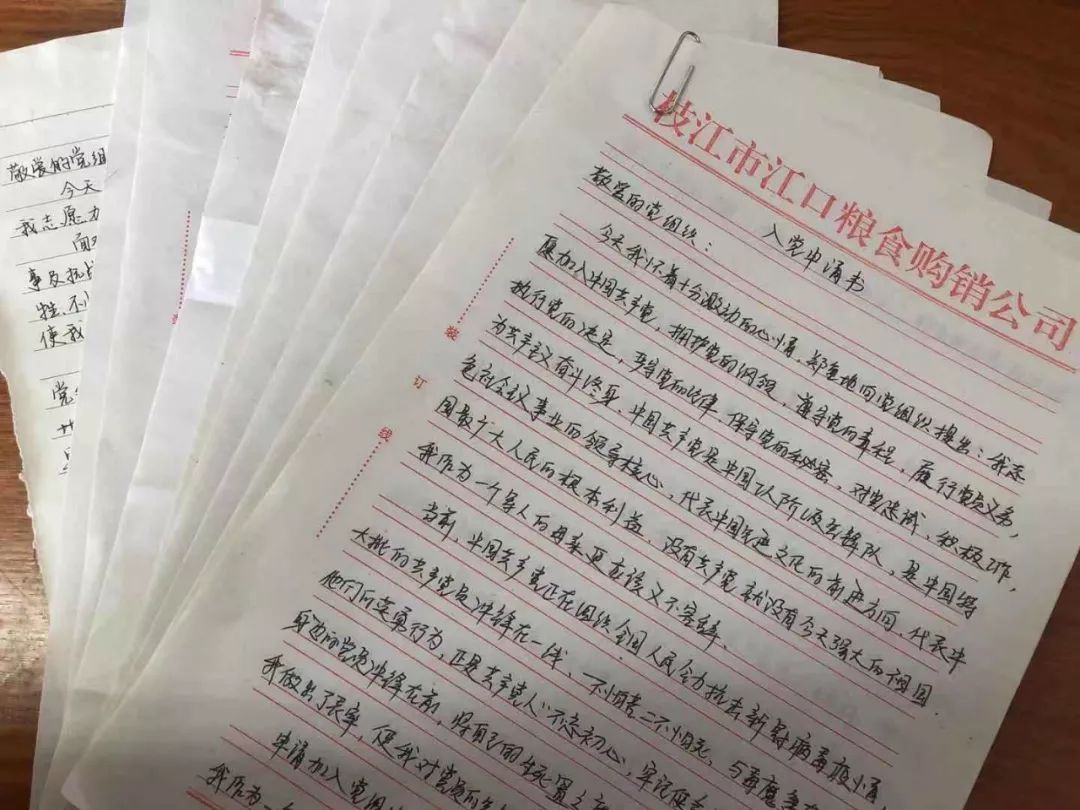 枝江市江口粮食购销公司
入党申请书
敬爱的党组织：
今天我怀着十分激动的心情，郑重地向党组织提出：我志
愿加入中国共产党，拥护党的纲领，遵守党的章程，履行党员义务，
执行党的决定，严守党的纪律，保守党的秘密，对党忠诚，积极工作，
为共产主义奋斗终身。中国共产党是中国工人阶级先锋队，是中国特
色社会主义事业的领导核心，代表中国先进文化的前进方向，代表中
国最广大人民的根本利益，没有共产党就没有今天强大的祖国。
我作为一个军人的母亲更应该义不容辞。
当前，中国共产党正在组织全国人民全力抗击新型病毒疫情
大批的共产党员冲锋在一线，一不怕苦二不怕死，与毒魔
他们的英勇行为，正是共产党人"不忘初心，牢记使
身边的党员冲锋在前，将自己的生死置之
我做出了表率，使我对党员的
申请加入党组
我作为一个
装
订
线
敬爱的党组
今天
我志愿加
面对
事及抗
牲、不
使我
党